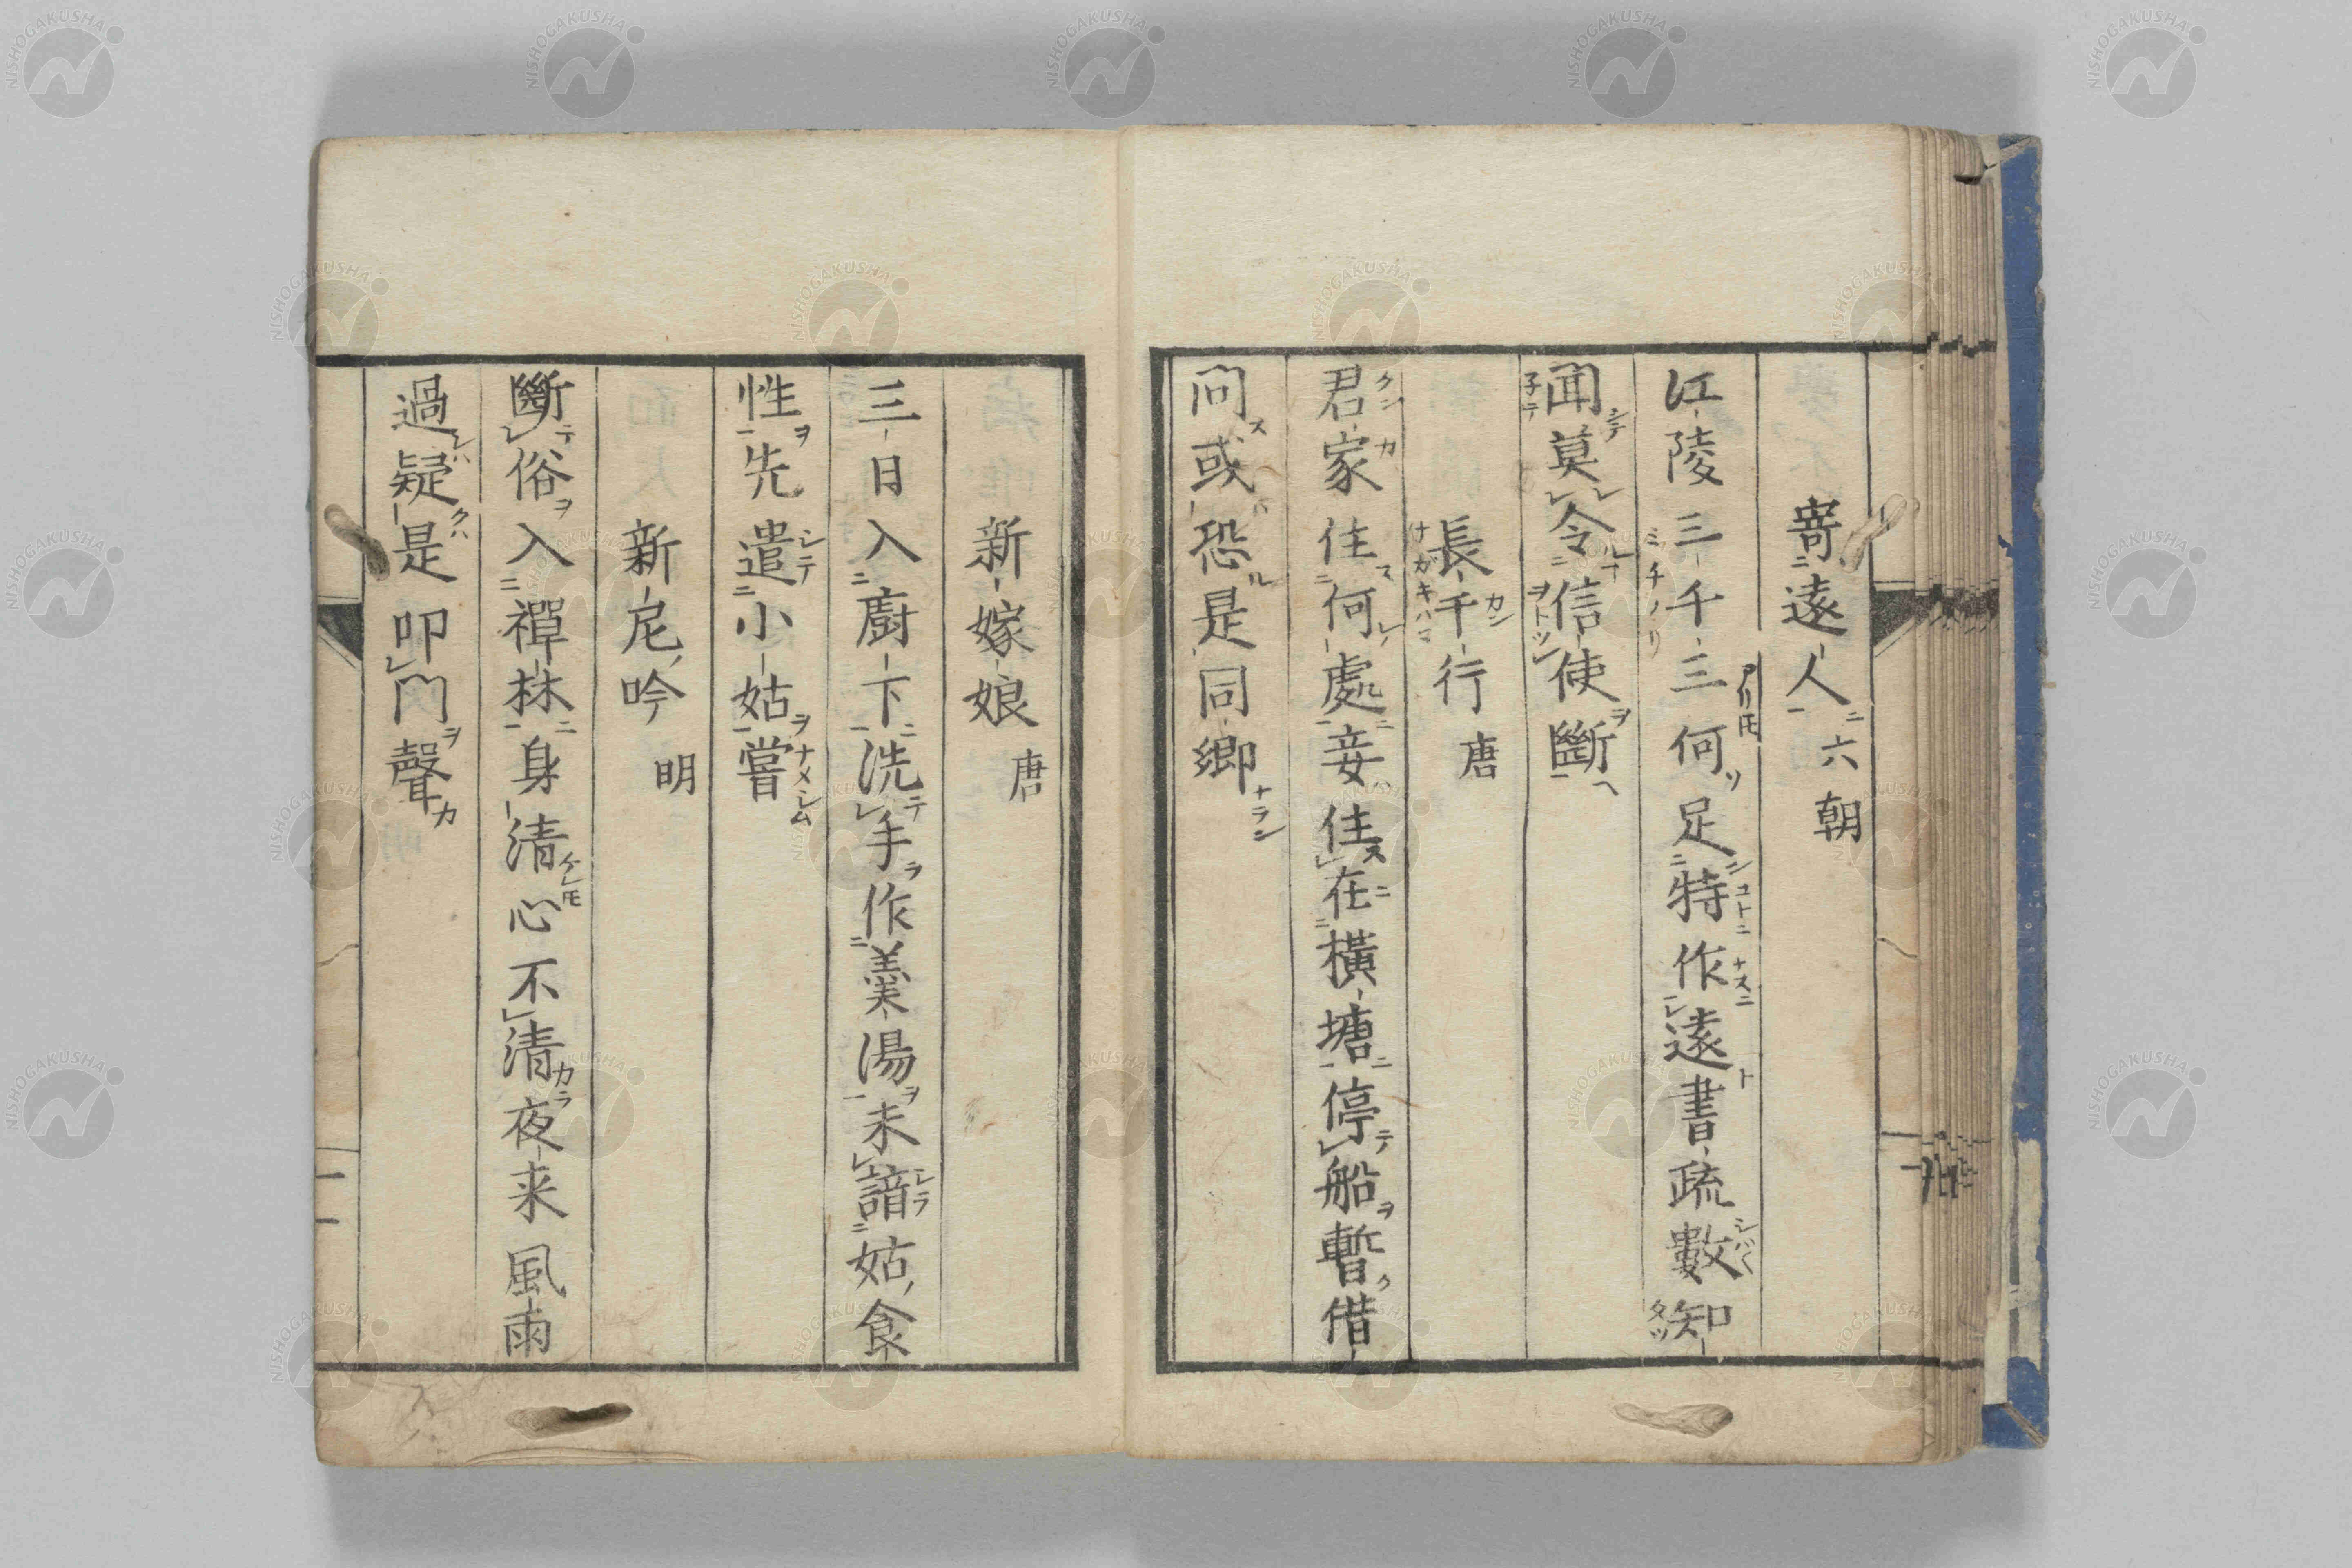 寄遠人 六朝
江陵三千三何足特作遠書疏數知
聞莫令信使斷
長干行 唐
君家住何處妾住在橫塘停船暫借
問或恐是同鄉
新嫁娘 唐
三日入廚下洗手作羹湯未諳姑食
性先遣小姑嘗
新尼吟 明
斷俗入禪林身清心不清夜来風雨
過疑是叩門聲